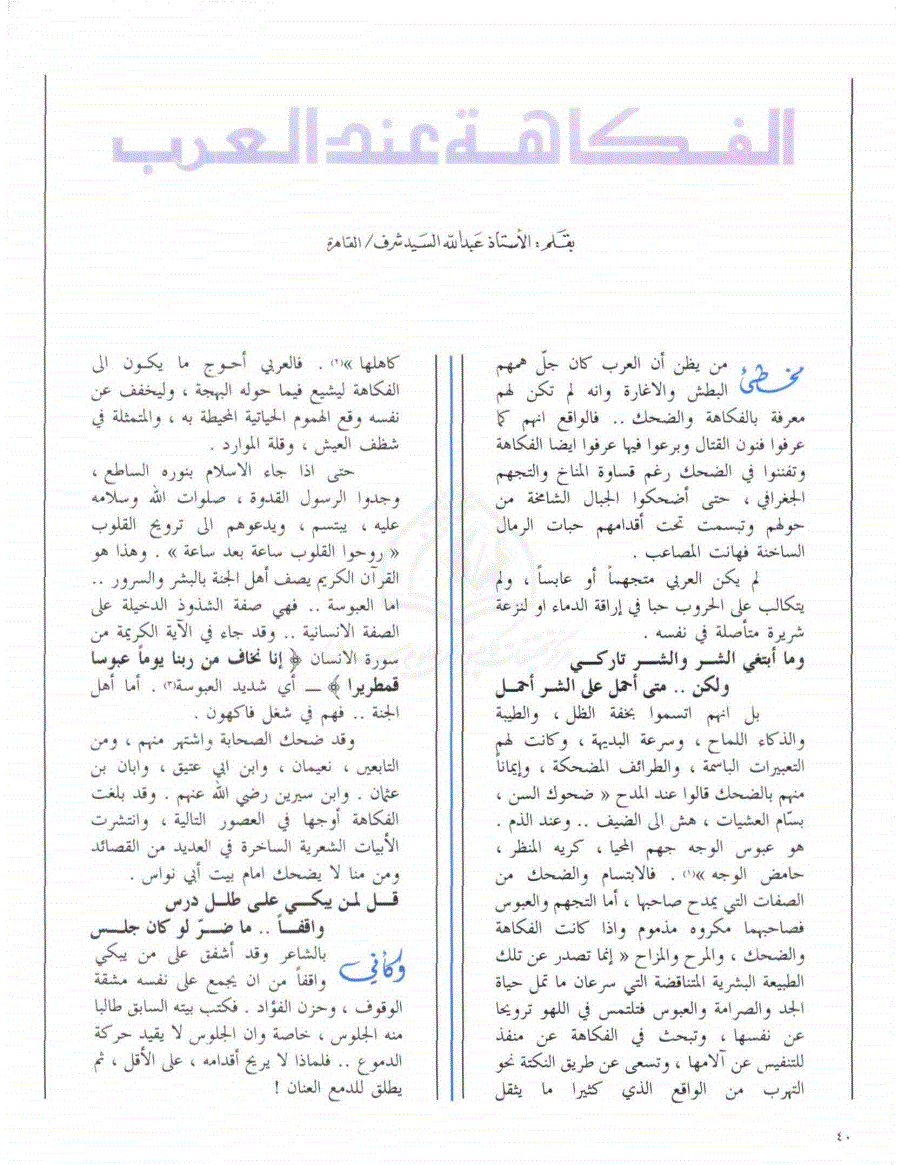 الفكاهة عند العرب
بقلم : الأستاذ عبدالله السيد شرف / القاهرة
مخطئ من يظن أن العرب كان جلّ همهم
البطش والاغارة وانه لم تكن لهم
معرفة بالفكاهة والضحك .. فالواقع انهم كما
عرفوا فنون القتال وبرعوا فيها عرفوا ايضا الفكاهة
وتفننوا في الضحك رغم قساوة المناخ والتجهم
الجغرافي ، حتى أضحكوا الجبال الشامخة من
حولهم وتبسمت تحت أقدامهم حبات الرمال
الساخنة فهانت المصاعب .
لم يكن العربي متجهماً أو عابساً ، ولم
يتكالب على الحروب حبا في إراقة الدماء او لنزعة
شريرة متأصلة في نفسه .
وما أبتغي الشـر والشـر تاركـي
ولكن .. متى أحمل على الشر أحمـل
بل انهم اتسموا بخفة الظل ، والطيبة
والذكاء اللماح ، وسرعة البديهة ، وكانت لهم
التعبيرات الباسمة ، والطرائف المضحكة ، وإيماناً
منهم بالضحك قالوا عند المدح « ضحوك السن ،
بسّام العشيات ، هش الى الضيف .. وعند الذم .
هو عبوس الوجه جهم المحيا ، كريه المنظر ،
حامض الوجه »(١) . فالابتسام والضحك من
الصفات التي يمدح صاحبها ، أما التجهم والعبوس
فصاحبهما مكروه مذموم واذا كانت الفكاهة
والضحك ، والمرح والمزاح « إنما تصدر عن تلك
الطبيعة البشرية المتناقضة التي سرعان ما تمل حياة
الجد والصرامة والعبوس فتلتمس في اللهو ترويحا
عن نفسها ، وتبحث في الفكاهة عن منفذ
للتنفيس عن آلامها ، وتسعى عن طريق النكتة نحو
التهرب من الواقع الذي كثيرا ما يثقل
كاهلها »(٢) . فالعربي أحـوج ما يكـون الى
الفكاهة ليشيع فيما حوله البهجة ، وليخفف عن
نفسه وقع الهموم الحياتية المحيطة به ، والمتمثلة في
شظف العيش ، وقلة الموارد .
حتى اذا جاء الاسلام بنوره الساطع ،
وجدوا الرسول القدوة ، صلوات الله وسلامه
عليه ، يبتسم ، ويدعوهم الى ترويح القلوب
« روحوا القلوب ساعة بعد ساعة » . وهذا هو
القرآن الكريم يصف أهل الجنة بالبشر والسرور ..
اما العبوسة .. فهي صفة الشذوذ الدخيلة على
الصفة الانسانية .. وقد جاء في الآية الكريمة من
سورة الانسان ﴿ إنا نخاف من ربنا يوماً عبوسا
قمطريرا ﴾ ــ أي شديد العبوسة(٣) . أما أهل
الجنة .. فهم في شغل فاكهون .
وقد ضحك الصحابة واشتهر منهم ، ومن
التابعين ، نعيمان ، وابن ابي عتيق ، وابان بن
عثمان . وابن سيرين رضي الله عنهم . وقد بلغت
الفكاهة أوجها في العصور التالية ، وانتشرت
الأبيات الشعرية الساخرة في العديد من القصائد
ومن منا لا يضحك امام بيت أبي نواس .
قـل لمـن يبكـي علـى طلـل درس
واقفـاً .. ما ضـرّ لو كان جلـس
وكأني بالشاعر وقد أشفق على من يبكي
واقفاً من ان يجمع على نفسه مشقة
الوقوف ، وحزن الفؤاد . فكتب بيته السابق طالبا
منه الجلوس ، خاصة وان الجلوس لا يقيد حركة
الدموع .. فلماذا لا يريح أقدامه ، على الأقل ، ثم
يطلق للدمع العنان !
٤٠